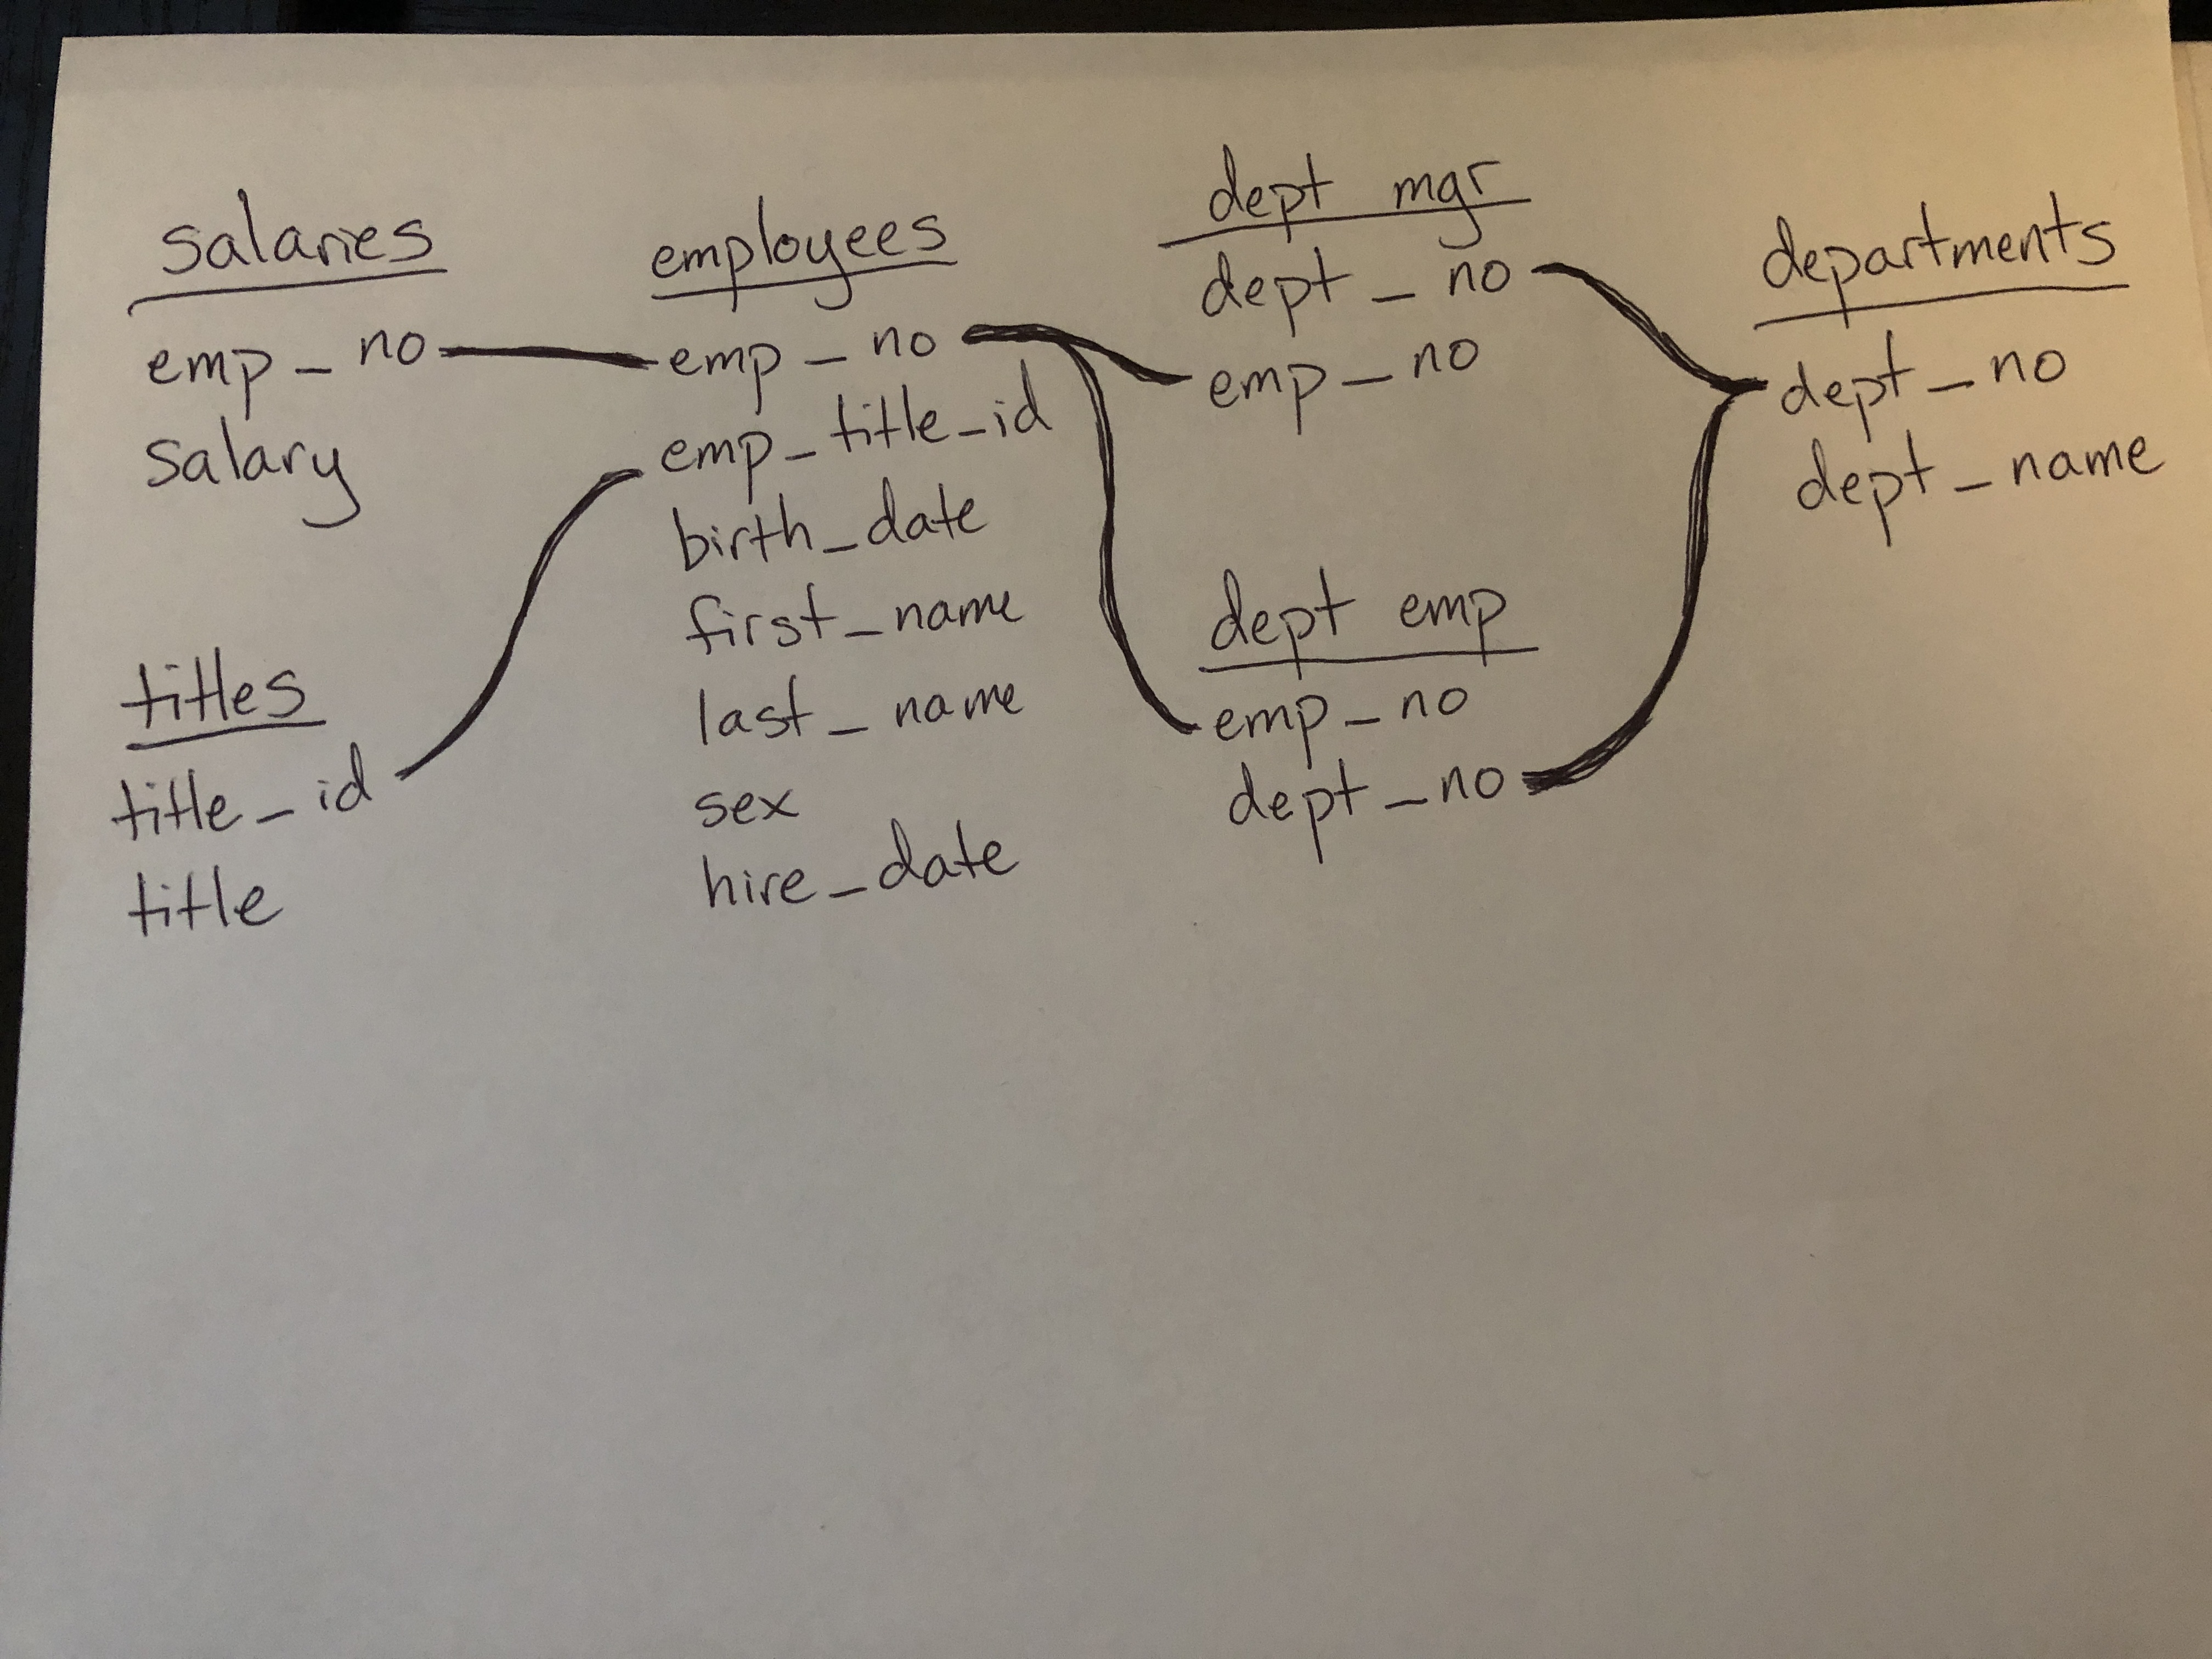 salaries
emp_no
salary
titles
title_id
title
employees
emp_no
emp_title_id
birth_date
first_name
last_name
sex
hire_date
dept mgr
dept_no
emp_no
dept emp
emp_no
dept_no
departments
dept_no
dept_name